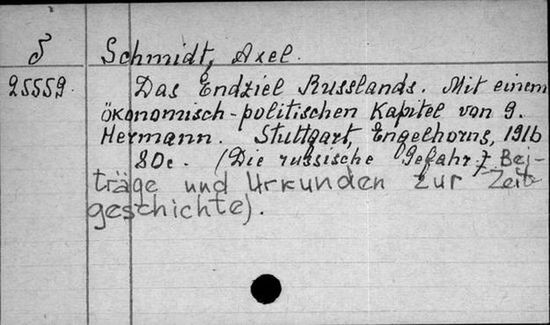 S Schmidt, Axel.
25559. Das Endziel Russlands. Mit einem
ökonomisch-politischen Kapitel von G.
Hermann. Stuttgart, Engelhorns, 1916
8Oc. (Die russische Gefahr. Bei-
träge und Urkunden zur Zeit-
geschichte).